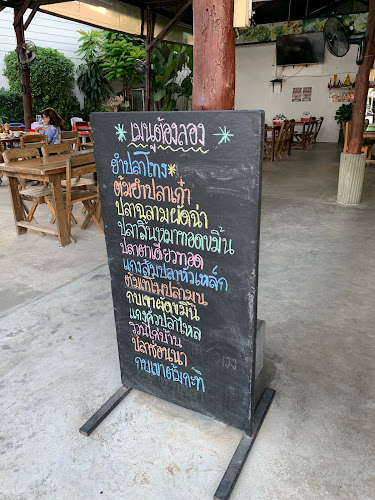 เมนูต้องลอง
ยำปลาโทง
ต้มยำปลาเก๋า
ปลาฉลามผัดฉ่า
ปลาลิ้นหมาทอดขมิ้น
ปลาตาเดียวทอด
แกงส้มปลาหัวเหล็ก
ต้มเทโพปลามูน
กบเขาผัดขมิ้น
แกงคั่วปลาไหล
รวนไก่บ้าน
ปลาช่อนนา
กบเขาต้มกะทิ